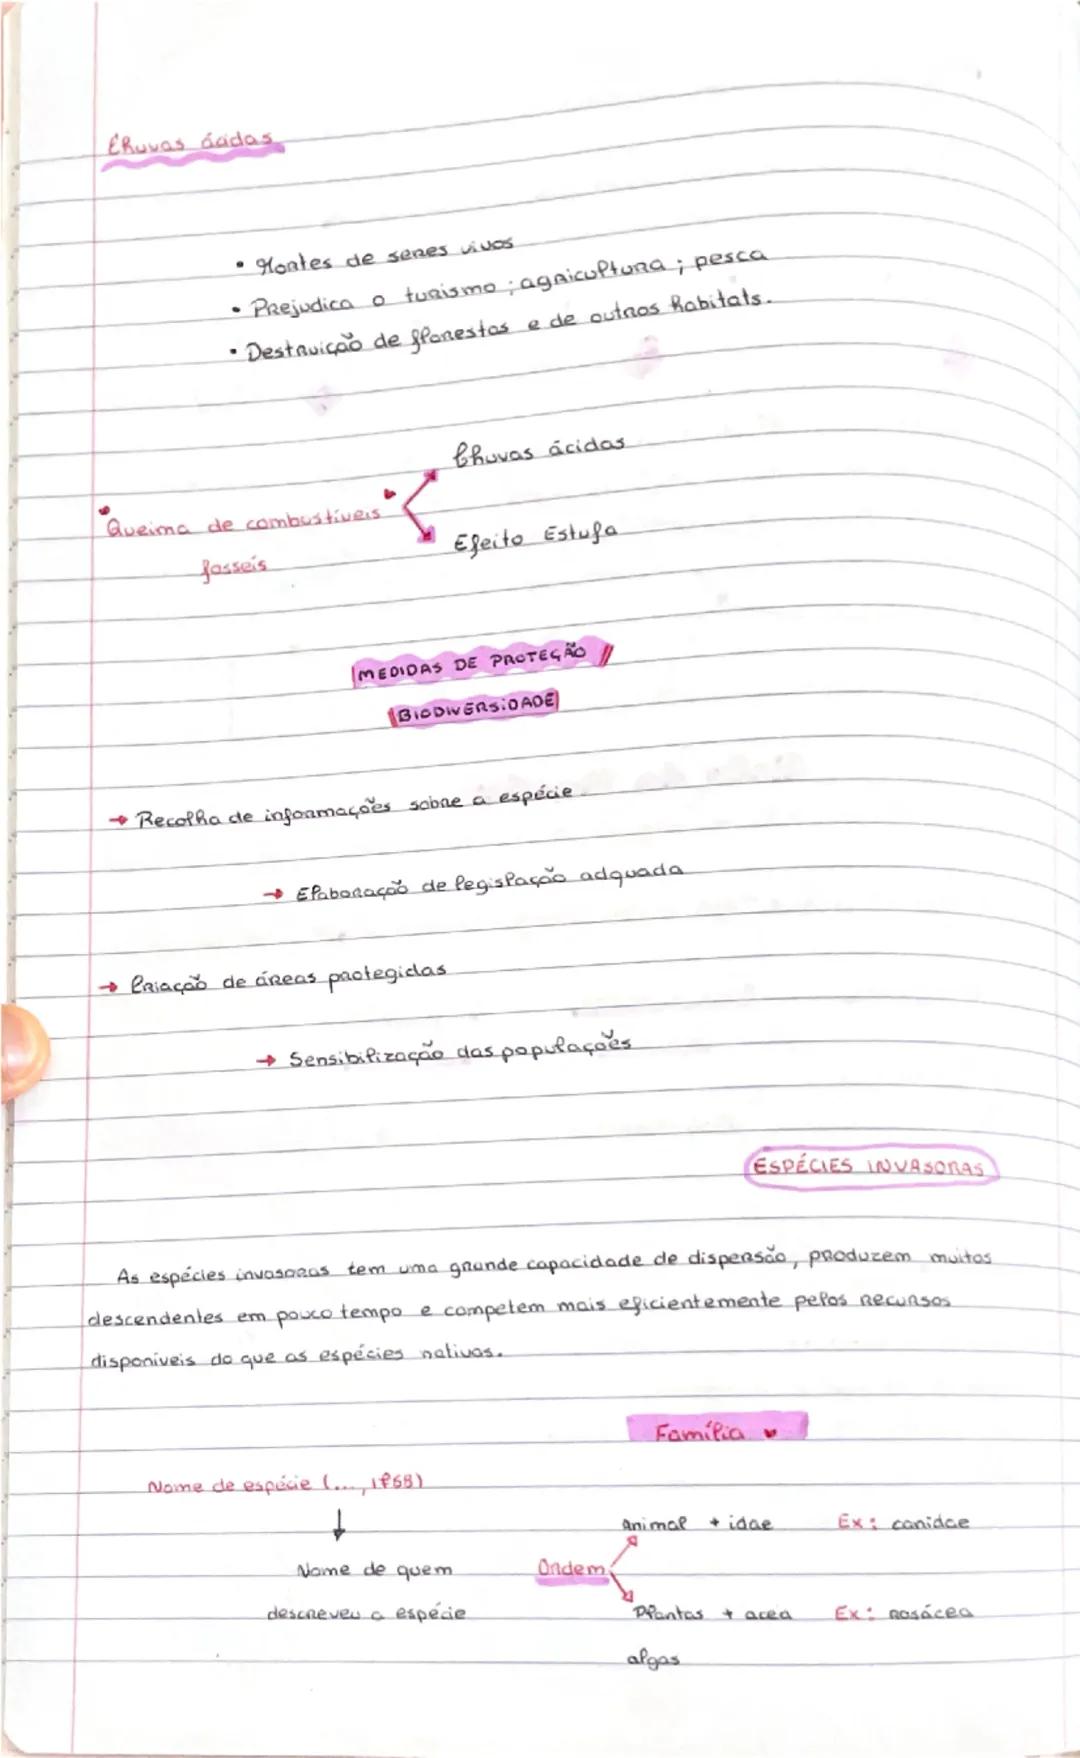 Chuvas ácidas
• Mortes de seres vivos
• Prejudica o turismo ; agricultura ; pesca
• Destruição de florestas e de outros habitats.
Chuvas ácidas
Queima de combustíveis
fosseis
Efeito Estufa
MEDIDAS DE PROTEÇÃO
BIODIVERSIDADE
→ Recolha de informações sobre a espécie
→ Elaboração de legislação adquada
→ Criação de áreas protegidas
→ Sensibilização das populações
ESPÉCIES INVASORAS
As espécies invasoras tem uma grande capacidade de dispersão, produzem muitos
descendentes em pouco tempo e competem mais eficientemente pelos recursos
disponíveis do que as espécies nativas.
Família
Nome de espécie (..., 1758)
↓
Nome de quem
descreveu a espécie
Ordem
Animal + idae Ex: canidae
Plantas + acea Ex: rosácea
algas